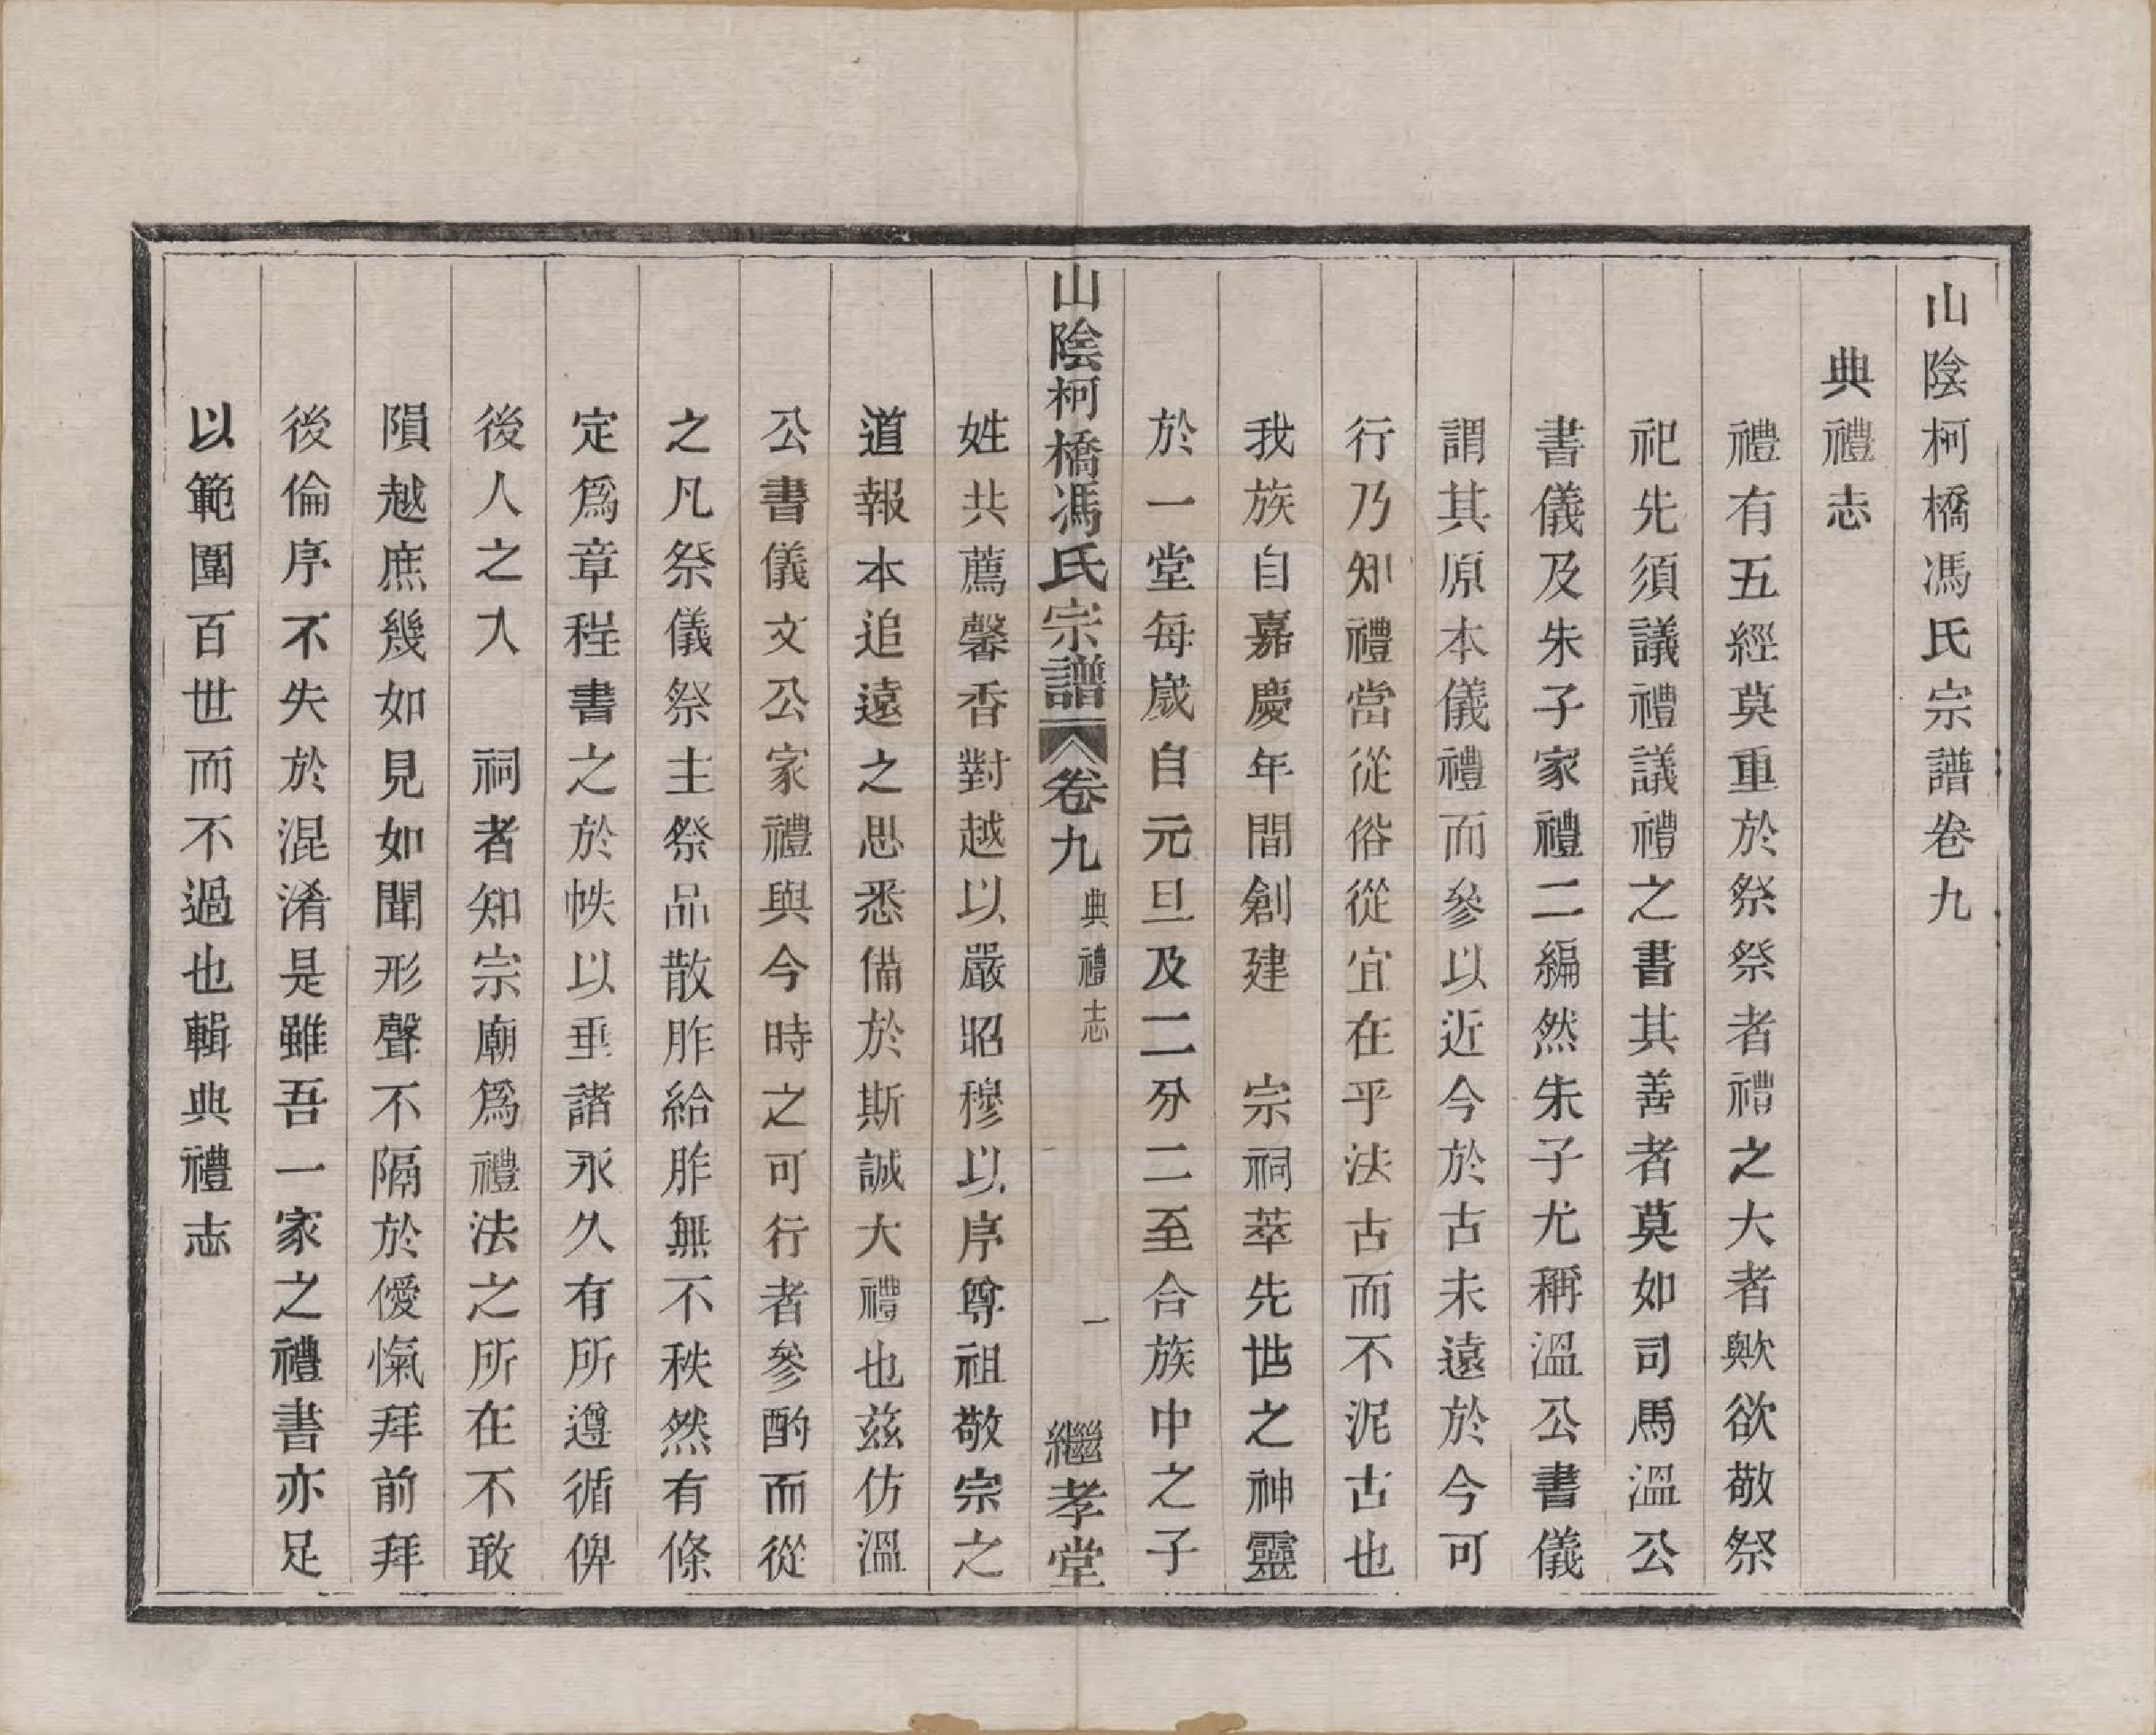 山陰柯橋馮氏宗譜卷九
典禮志
禮有五經莫重於祭祭者禮之大者歟欲敬祭
祀先須議禮議禮之書其善者莫如司馬溫公
書儀及朱子家禮二編然朱子尤稱溫公書儀
謂其原本儀禮而參以近今於古未遠於今可
行乃知禮當從俗從宜在乎法古而不泥古也
我族自嘉慶年間創建　宗祠萃先世之神靈
於一堂每歲自元旦及二分二至合族中之子
山陰柯橋馮氏宗譜 卷九 典禮志 一 繼孝堂
姓共薦馨香對越以嚴昭穆以序尊祖敬宗之
道報本追遠之思悉備於斯誠大禮也茲仿溫
公書儀文公家禮與今時之可行者參酌而從
之凡祭儀祭主祭品散胙給胙無不秩然有條
定爲章程書之於帙以垂諸永久有所遵循俾
後人之入　祠者知宗廟爲禮法之所在不敢
隕越庶幾如見如聞形聲不隔於僾愾拜前拜
後倫序不失於混淆是雖吾一家之禮書亦足
以範圍百世而不過也輯典禮志